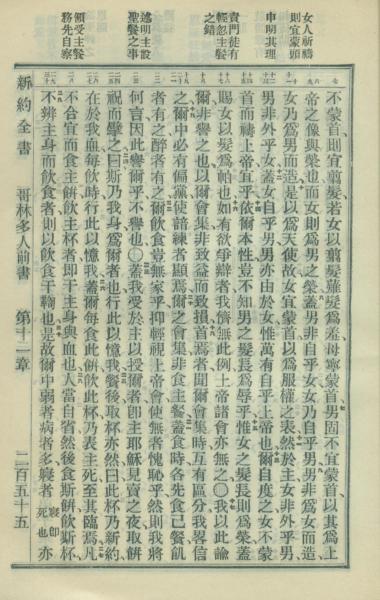 女人祈禱
則宜蒙頭
申明其理
責門徒有
輕忽主餐
之錯
述明主設
聖餐之事
領受主餐
務先自察
不蒙首、則宜翦髮、若女以翦髮薙髮爲羞、毋寧蒙首、男固不宜蒙首、以其爲上
帝之像與榮也、而女則爲男之榮、蓋男非自乎女、乃女自乎男、男非爲女而造、
女乃爲男而造、是以爲天使故、女宜蒙首、以爲服權之表、然於主女非外乎男、
男非外乎女、蓋女自乎男、男亦由於女、惟萬有自乎上帝也、爾自度之、女不蒙
首而禱上帝宜乎、依爾本性、豈不知男之髮長爲辱乎、惟女之髮長則爲榮、蓋
賜女以髮爲帕也、如有欲爭辯者、我儕無此例、上帝諸會亦無之、〇我以此諭
爾、非譽之也、以爾會集、非致益而致損、首焉者聞爾會集時互有區分、我畧信
之、爾中必有偏黨、使諳練者顯焉、爾之會集、非食主餐、蓋食時各先食己餐、飢
者有之、醉者有之、爾飲食豈無家乎、抑輕視上帝會、使無者愧恥乎、然則我將
何言、因此譽爾乎、不譽也、〇蓋我受於主以授爾者、卽主耶穌見賣之夜取餅、
祝而擘之、曰、斯乃我身、爲爾者也、行此以憶我、餐後取杯亦然、曰、此杯乃新約、
在於我血、每飲時行此以憶我、蓋爾每食此餅、飲此杯、乃表主死、至其臨焉、凡
不合宜而食主餅飲主杯者、卽干主身與血也、人當自省、然後食斯餅、飲斯杯、
不辨主身而飲食者、則以飲食干鞫也、是故爾中弱者病者多、寢者寢卽死也亦
新約全書　哥林多人前書　第十一章　二百五十五